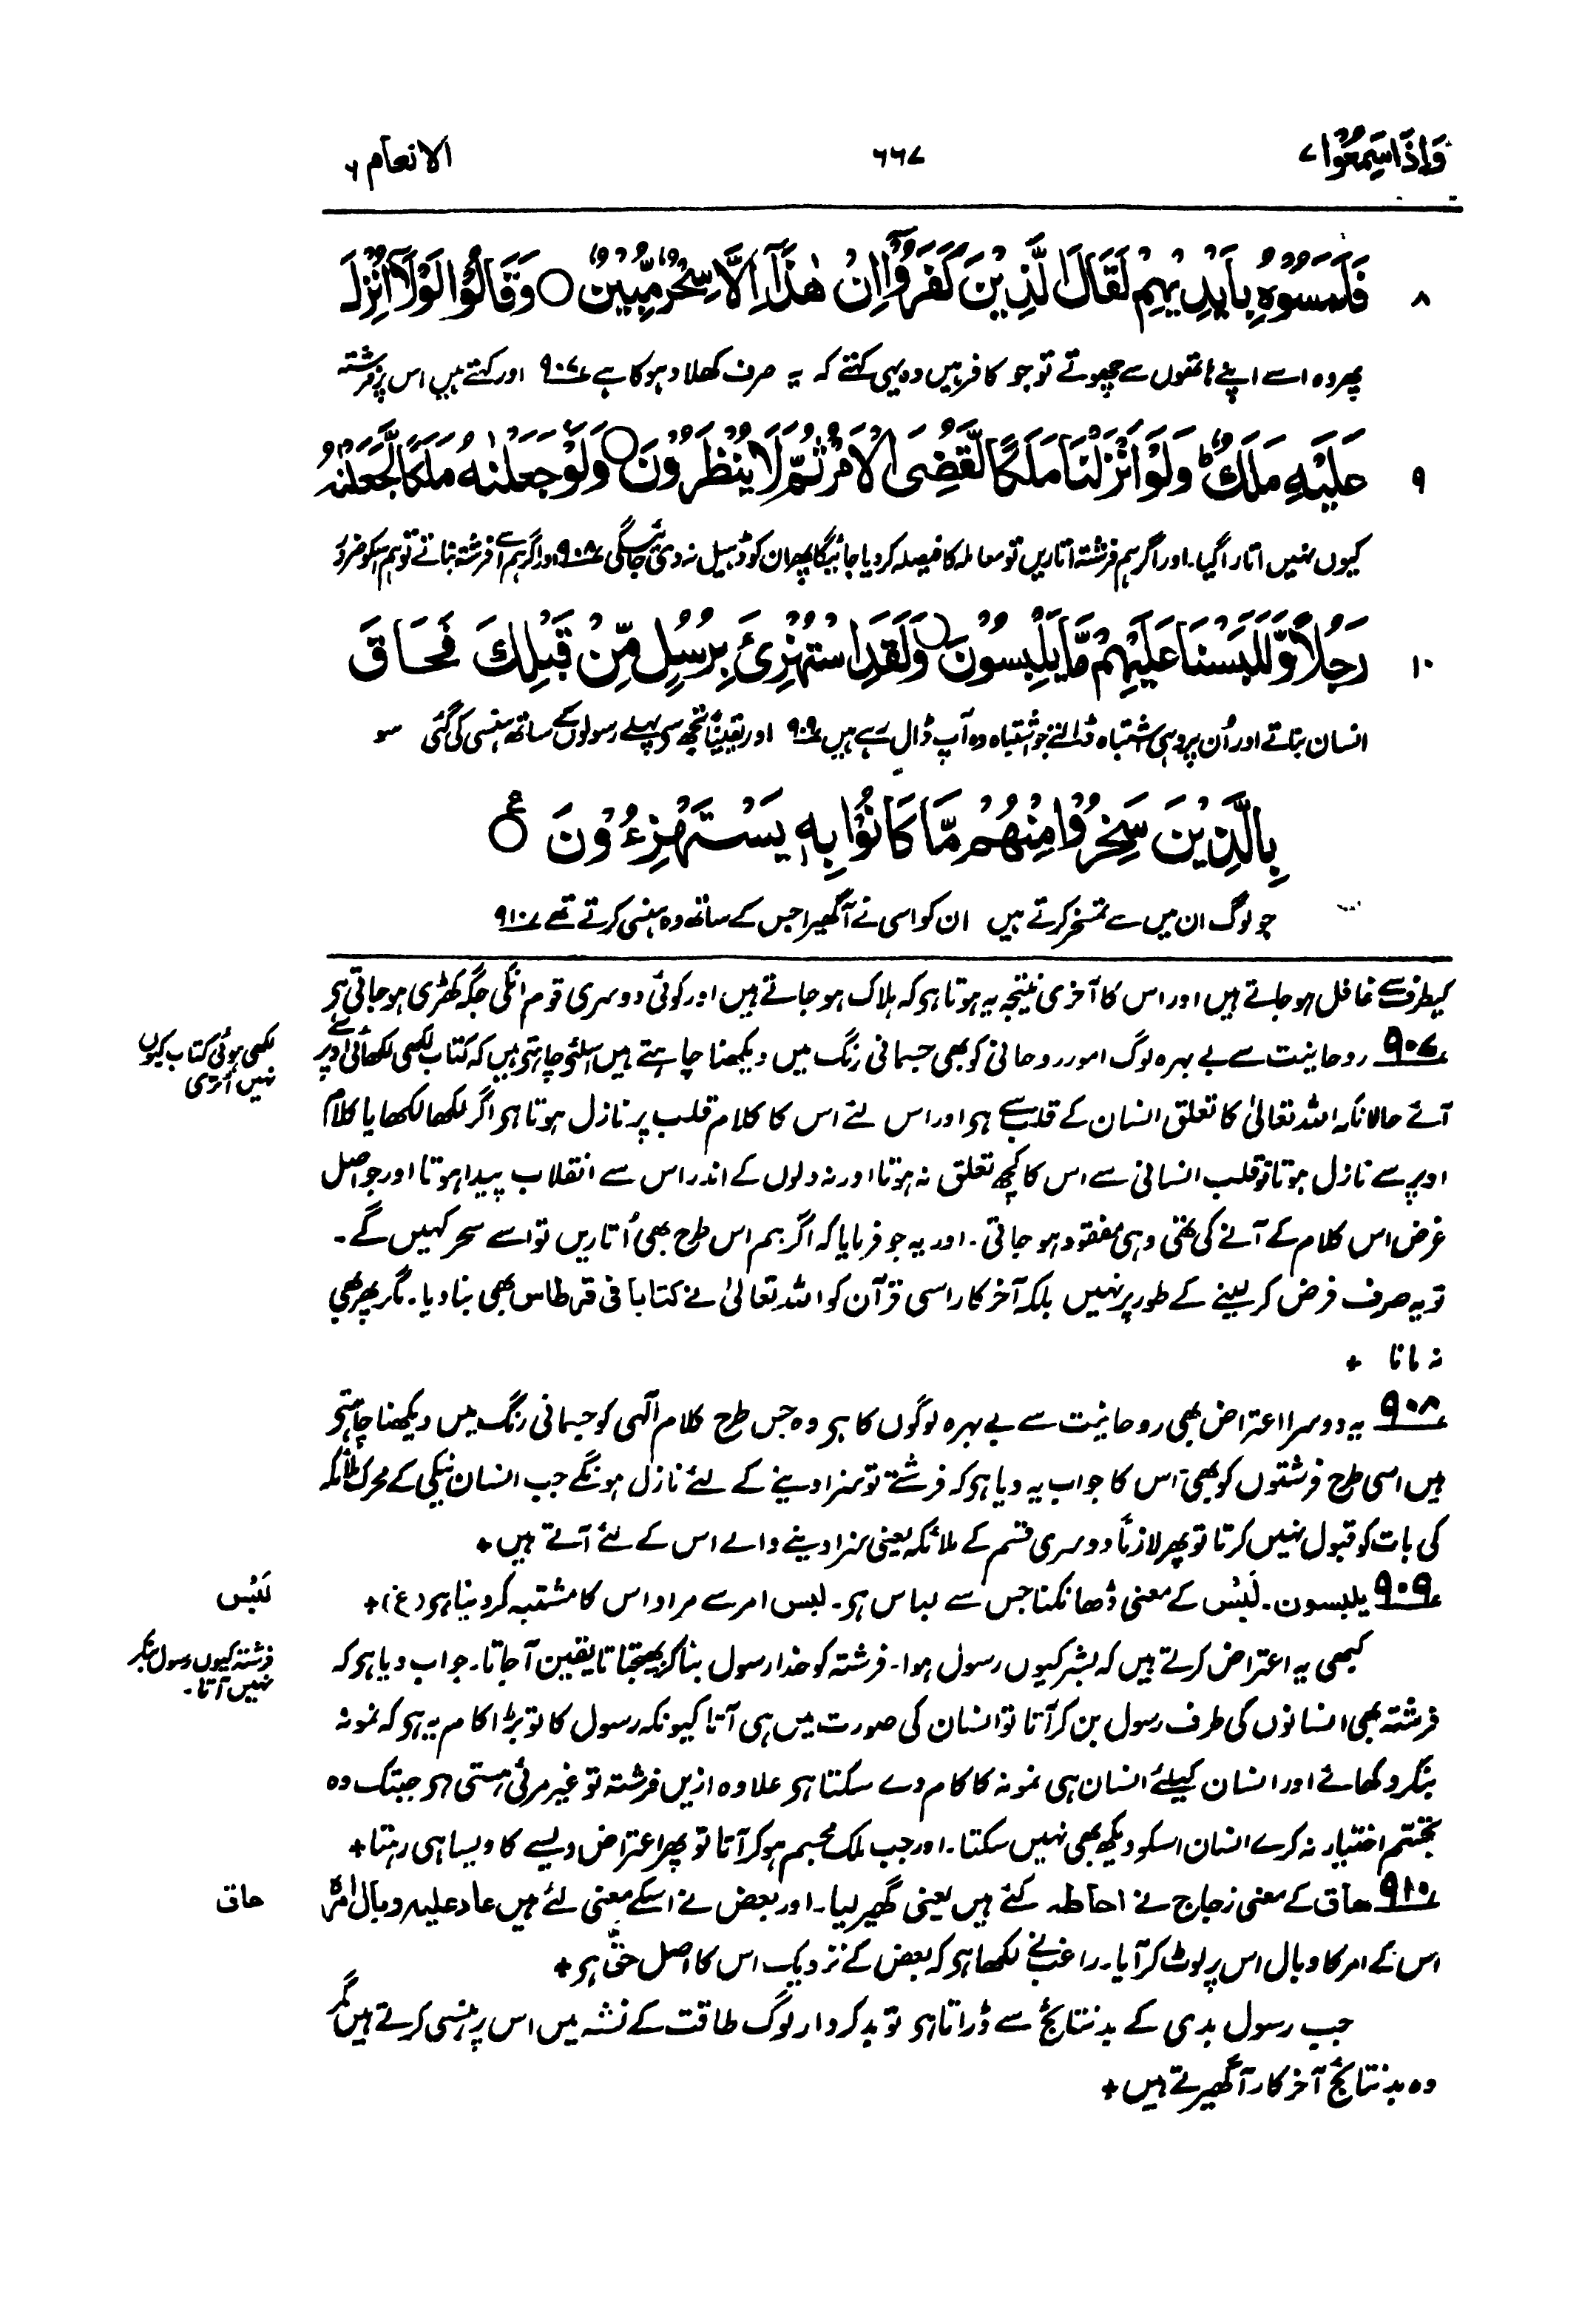 وَاِذَا سَمِعُوْا ۷
۶۶۷
الانعام ۶
۸ فَلَمَسُوْهُ بِاَيْدِيْهِمْ لَقَالَ الَّذِيْنَ كَفَرُوْٓا اِنْ هٰذَآ اِلَّا سِحْرٌ مُّبِيْنٌ ○ وَقَالُوْا لَوْلَآ اُنْزِلَ
پھر وہ اسے اپنے ہاتھوں سے چھوتے تو جو کافر ہیں وہ یہی کہتے کہ یہ صرف کھلا دہوکا ہے ۹۰۷ اور کہتے ہیں اس پر فرشتہ
۹ عَلَيْهِ مَلَكٌ ؕ وَلَوْ اَنْزَلْنَا مَلَكًا لَّقُضِىَ الْاَمْرُ ثُمَّ لَا يُنْظَرُوْنَ ○ وَلَوْ جَعَلْنٰهُ مَلَكًا لَّجَعَلْنٰهُ
کیوں نہیں اتارا گیا۔ اور اگر ہم فرشتہ اتاریں تو معاملہ کا فیصلہ کردیا جائیگا پھر ان کو ڈہیل نہ دی جائیگی ۹۰۸ اور اگر ہم اسے فرشتہ بناتے تو ہم اسکو ضرور
۱۰ رَجُلًا وَّلَلَبَسْنَا عَلَيْهِمْ مَّا يَلْبِسُوْنَ ○ وَلَقَدِ اسْتُهْزِئَ بِرُسُلٍ مِّنْ قَبْلِكَ فَحَاقَ
انسان بناتے اور اُن پر وہی اشتباہ ڈالتے جو اشتباہ وہ آپ ڈال رہے ہیں ۹۰۹ اور یقیناً تجھ سے پہلے رسولوں کے ساتھ ہنسی کی گئی سو
بِالَّذِيْنَ سَخِرُوْا مِنْهُمْ مَّا كَانُوْا بِهٖ يَسْتَهْزِءُوْنَ ○ ع
جو لوگ ان میں سے تمسخر کرتے ہیں ان کو اسی نے آگھیرا جس کے ساتھ وہ ہنسی کرتے تھے ۹۱۰
کیطرف سے غافل ہو جاتے ہیں اور اس کا آخری نتیجہ یہ ہوتا ہو کہ ہلاک ہو جاتے ہیں اور کوئی دوسری قوم انکی جگہ کھڑی ہو جاتی ہو
۹۰۷ روحانیت سے بے بہرہ لوگ امور روحانی کو بھی جسمانی رنگ میں دیکھنا چاہتے ہیں اسلئے چاہتے ہیں کہ کتاب لکھی لکھائی اوپر سے
لکھی ہوئی کتاب کیوں
نہیں اُتری
آئے حالانکہ اللہ تعالیٰ کا تعلق انسان کے قلب سے ہو اور اس لئے اس کا کلام قلب پر نازل ہوتا ہو اگر لکھا لکھایا کلام
اوپر سے نازل ہوتا تو قلب انسانی سے اس کا کچھ تعلق نہ ہوتا اور نہ دلوں کے اندر اس سے انقلاب پیدا ہوتا اور جو اصل
غرض اس کلام کے آنے کی تھی وہی مفقود ہو جاتی۔ اور یہ جو فرمایا کہ اگر ہم اس طرح بھی اُتاریں تو اسے سحر کہیں گے۔
تو یہ صرف فرض کر لینے کے طور پر نہیں بلکہ آخر کار اسی قرآن کو اللہ تعالیٰ نے کتابا فی قرطاس بھی بنا دیا۔ مگر پھر بھی
نہ مانا +
۹۰۸ یہ دوسرا اعتراض بھی روحانیت سے بے بہرہ لوگوں کا ہو وہ جس طرح کلام الٰہی کو جسمانی رنگ میں دیکھنا چاہتے
ہیں اسی طرح فرشتوں کو بھی۔ اس کا جواب یہ دیا ہو کہ فرشتے تو سزا دینے کے لئے نازل ہونگے جب انسان نیکی کے محرک ملائکہ
کی بات کو قبول نہیں کرتا تو پھر لازماً دوسری قسم کے ملائکہ یعنی سزا دینے والے اس کے لئے آتے ہیں +
۹۰۹ یلبسون۔ لَبْس کے معنی ڈھانکنا جس سے لباس ہو۔ لبس امر سے مراد اس کا مشتبہ کر دینا ہو (غ) +
لَبْس
کبھی یہ اعتراض کرتے ہیں کہ بشر کیوں رسول ہوا۔ فرشتہ کو خدا رسول بنا کر بھیجتا تا یقین آجاتا۔ جواب دیا ہو کہ
فرشتہ کیوں رسول بنکر
نہیں آتا۔
فرشتہ بھی انسانوں کی طرف رسول بن کر آتا تو انسان کی صورت میں ہی آتا کیونکہ رسول کا تو بڑا کام یہ ہو کہ نمونہ
بنکر دکھائے اور انسان کیلئے انسان ہی نمونہ کا کام دے سکتا ہو علاوہ ازیں فرشتہ تو غیر مرئی ہستی ہو جبتک وہ
تجسّم اختیار نہ کرے انسان اسکو دیکھ بھی نہیں سکتا۔ اور جب ملک مجسم ہو کر آتا تو پھر اعتراض ویسے کا ویسا ہی رہتا +
۹۱۰ حاق کے معنی زجاج نے احاطہ کئے ہیں یعنی گھیر لیا۔ اور بعض نے اسکے معنی لئے ہیں عاد علیہ وبال امرہ
حاق
اس کے امر کا وبال اس پر لوٹ کر آیا۔ راغب نے لکھا ہو کہ بعض کے نزدیک اس کا اصل حقّ ہو +
جب رسول بدی کے بد نتائج سے ڈراتا ہو تو بدکردار لوگ طاقت کے نشہ میں اس پر ہنسی کرتے ہیں مگر
وہ بد نتائج آخر کار آگھیرتے ہیں +